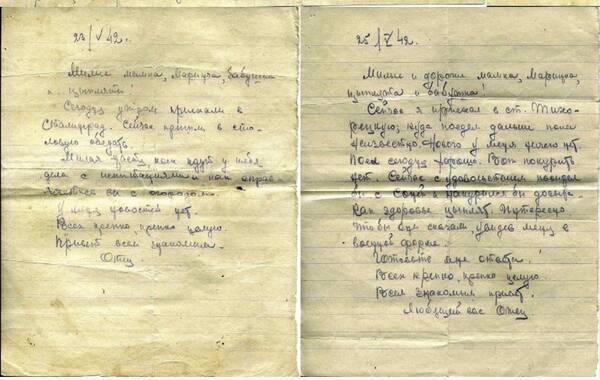 23/V 42.
Милые мамка, Маришка, бабушка
и цыплята!
Сегодня утром приехали в
Сталинград. Сейчас идем в сто-
ловую обедать.
Милая как идут у тебя
дела с и как справ-
ляетесь вы с огородом.
У меня новостей нет.
Всех крепко, крепко целую.
Привет всем знакомым.
Отец
25/V 42.
Милые и дорогие мамка, Маришка,
цыплята и бабушка!
Сейчас я приехал в ст. Тихо-
рецкую; куда поедем дальше пока
неизвестно. Нового у меня ничего нет.
Поел сегодня хорошо. Вот покурить
нет. Сейчас с удовольствием
бы с и бы
Как здоровье цыплят. Интересно
чтобы они сказали, увидев меня в
военной форме.
еще
Всех крепко, крепко целую.
Всем знакомым привет.
Любящий вас Отец